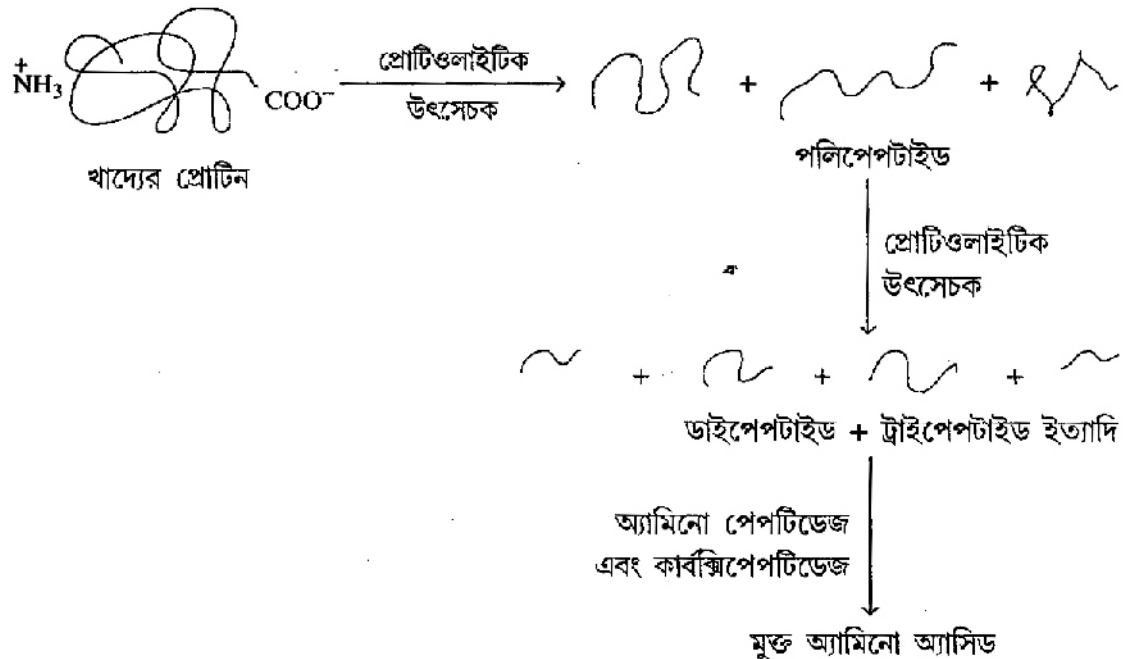 প্রোটিওলাইটিক
উৎসেচক
+
NH₃
COO⁻
+
+
খাদ্যের প্রোটিন
পলিপেপটাইড
প্রোটিওলাইটিক
উৎসেচক
+ + +
ডাইপেপটাইড + ট্রাইপেপটাইড ইত্যাদি
অ্যামিনো পেপটিডেজ
এবং কার্বক্সিপেপটিডেজ
মুক্ত অ্যামিনো অ্যাসিড